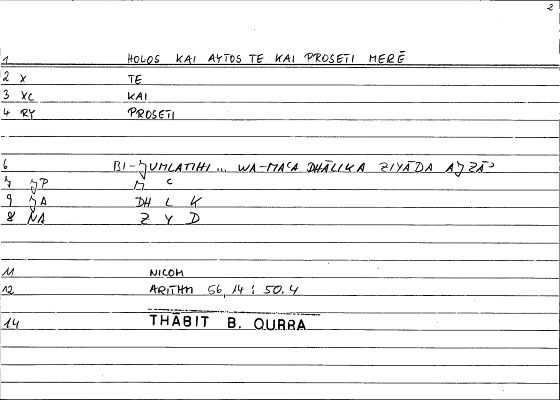 2
1 HOLOS KAI AYTOS TE KAI PROSETI MERĒ
2 X TE
3 XC KAI
4 RY PROSETI
6 BI-JUMLATIHI ... WA-MAʿA DHĀLIKA ZIYĀDA AJZĀʾ
7 JP M ʿ
9 JA DH L K
8 NA Z Y D
11 NICOM
12 ARITHM 56, 14 : 50.4
14 THĀBIT B. QURRA